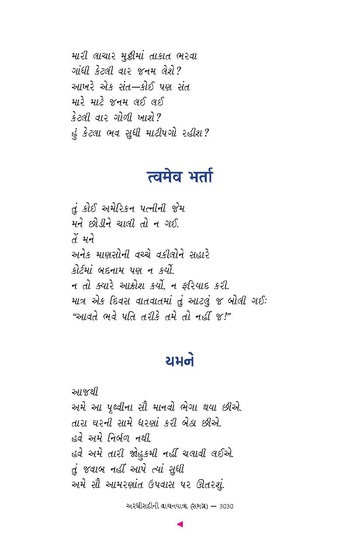 મારી લાચાર મુઠ્ઠીમાં તાકાત ભરવા
ગાંધી કેટલી વાર જનમ લેશે?
આખરે એક સંત—કોઈ પણ સંત
મારે માટે જનમ લઈ લઈ
કેટલી વાર ગોળી ખાશે?
હું કેટલા ભવ સુધી માટીપગો રહીશ?
ત્વમેવ ભર્તા
તું કોઈ અમેરિકન પત્નીની જેમ
મને છોડીને ચાલી તો ન ગઈ.
તેં મને
અનેક માણસોની વચ્ચે વકીલોને સહારે
કોર્ટમાં બદનામ પણ ન કર્યો.
ન તો ક્યારે આક્રોશ કર્યો, ન ફરિયાદ કરી.
માત્ર એક દિવસ વાતવાતમાં તું આટલું જ બોલી ગઈઃ
“આવતે ભવે પતિ તરીકે તમે તો નહીં જ!”
યમને
આજથી
અમે આ પૃથ્વીના સૌ માનવો ભેગા થયા છીએ.
તારા ઘરની સામે ધરણાં કરી બેઠા છીએ.
હવે અમે નિર્બળ નથી.
હવે અમે તારી જોહુકમી નહીં ચલાવી લઈએ.
તું જવાબ નહીં આપે ત્યાં સુધી
અમે સૌ આમરણાંત ઉપવાસ પર ઊતરશું.
અરધીસદીની વાચનયાત્રા (સમગ્ર) — 3030